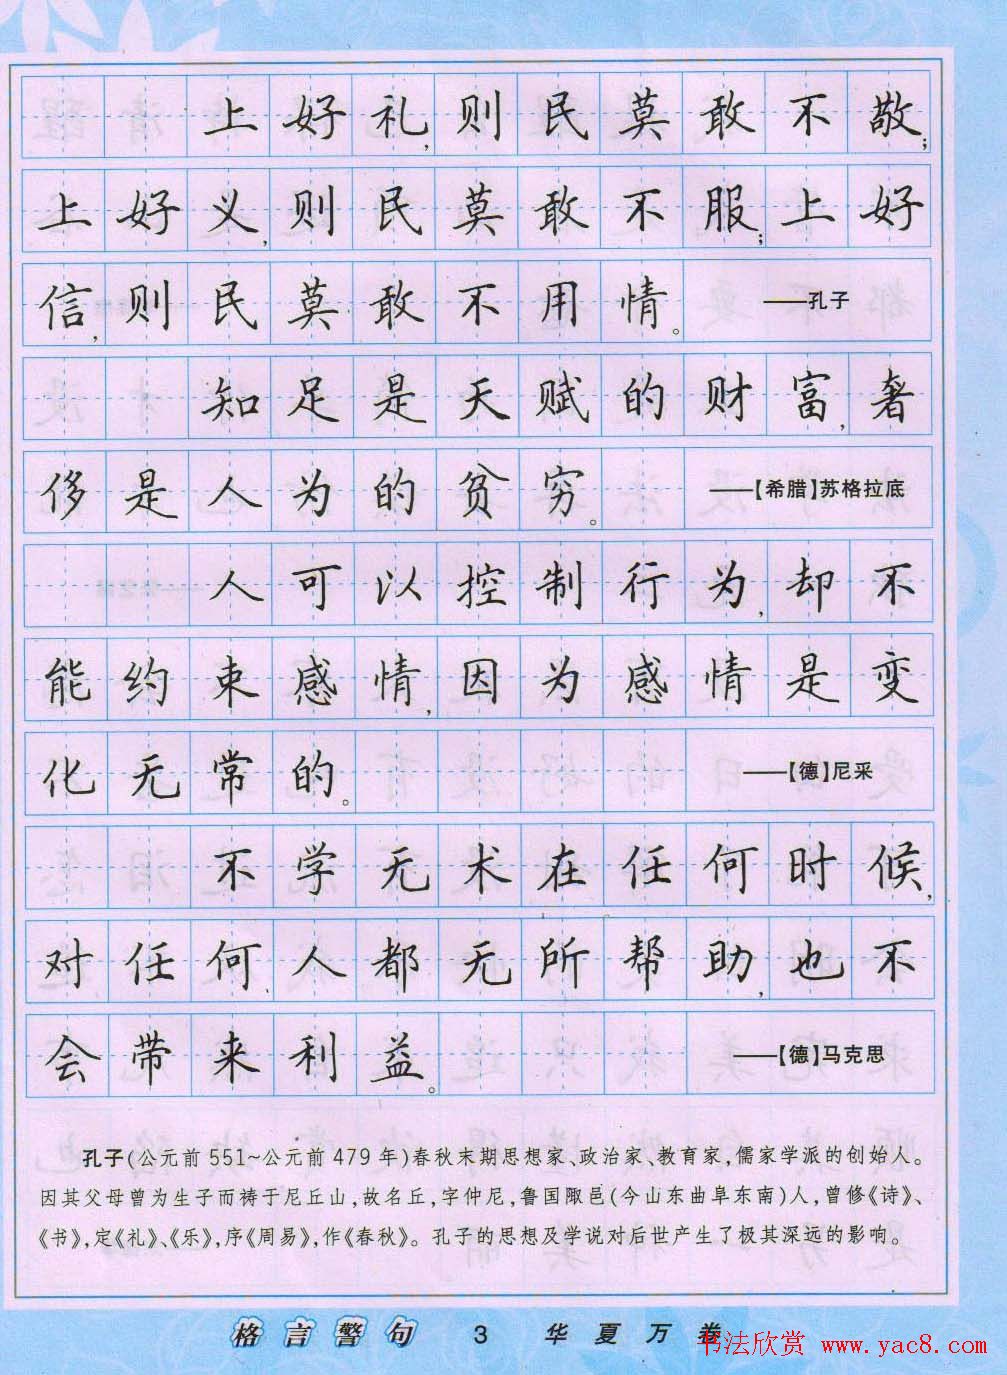 上好礼,则民莫敢不敬;
上好义,则民莫敢不服;上好
信,则民莫敢不用情。 ——孔子
知足是天赋的财富,奢
侈是人为的贫穷。 ——【希腊】苏格拉底
人可以控制行为,却不
能约束感情,因为感情是变
化无常的。 ——【德】尼采
不学无术在任何时候,
对任何人都无所帮助,也不
会带来利益。 ——【德】马克思
孔子(公元前551~公元前479年)春秋末期思想家、政治家、教育家,儒家学派的创始人。
因其父母曾为生子而祷于尼丘山,故名丘,字仲尼,鲁国陬邑(今山东曲阜东南)人,曾修《诗》、
《书》,定《礼》、《乐》,序《周易》,作《春秋》。孔子的思想及学说对后世产生了极其深远的影响。
格言警句 3 华夏万卷
书法欣赏 www.yac8.com